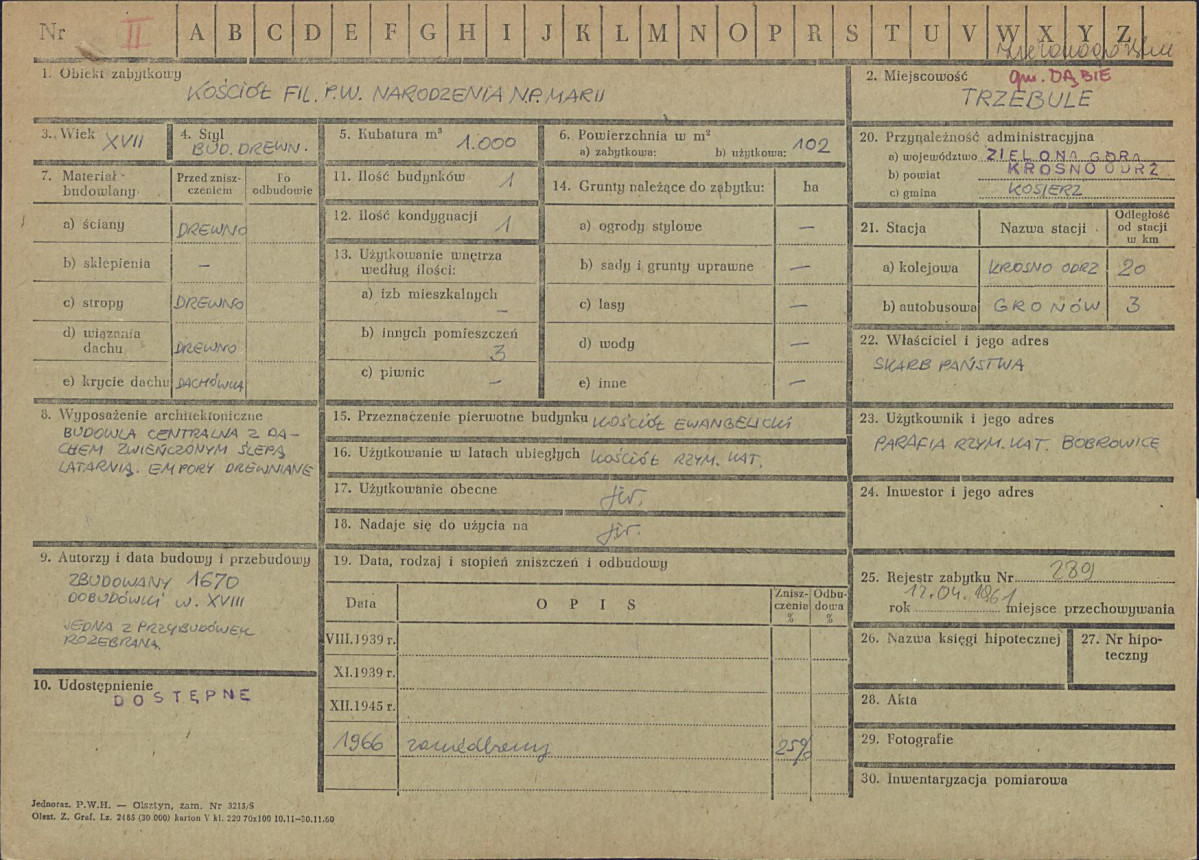 Nr II A B C D E F G H I J K L M N O P R S T U V W X Y Z
1. Obiekt zabytkowy
KOŚCIÓŁ FIL. P.W. NARODZENIA N.P. MARII
2. Miejscowość gm. DĄBIE
TRZEBULE
3. Wiek XVII
4. Styl
BUD. DREWN.
5. Kubatura m³ 1.000
6. Powierzchnia w m²
a) zabytkowa: b) użytkowa: 102
7. Materiał budowlany
Przed zniszczeniem
Po odbudowie
a) ściany DREWNO
b) sklepienia —
c) stropy DREWNO
d) wiązania dachu DREWNO
e) krycie dachu DACHÓWKA
8. Wyposażenie architektoniczne
BUDOWLA CENTRALNA Z DA-
CHEM ZWIEŃCZONYM ŚLEPĄ
LATARNIĄ. EMPORY DREWNIANE
9. Autorzy i data budowy i przebudowy
ZBUDOWANY 1670
DOBUDÓWKI W. XVIII
JEDNA Z PRZYBUDÓWEK
ROZEBRANA.
10. Udostępnienie
DOSTĘPNE
11. Ilość budynków 1
12. Ilość kondygnacji 1
13. Użytkowanie wnętrza
według ilości:
a) izb mieszkalnych —
b) innych pomieszczeń 3
c) piwnic —
14. Grunty należące do zabytku: ha
a) ogrody stylowe —
b) sady i grunty uprawne —
c) lasy —
d) wody —
e) inne —
15. Przeznaczenie pierwotne budynku KOŚCIÓŁ EWANGELICKI
16. Użytkowanie w latach ubiegłych KOŚCIÓŁ RZYM. KAT.
17. Użytkowanie obecne jw.
18. Nadaje się do użycia na jw.
19. Data, rodzaj i stopień zniszczeń i odbudowy
Data OPIS Zniszczenia % Odbudowa %
VIII.1939 r.
XI.1939 r.
XII.1945 r.
1966 zaniedbany 25%
20. Przynależność administracyjna
a) województwo ZIELONA GÓRA
b) powiat KROSNO ODRZ
c) gmina KOSIERZ
21. Stacja Nazwa stacji Odległość od stacji w km
a) kolejowa KROSNO ODRZ 20
b) autobusowa GRONÓW 3
22. Właściciel i jego adres
SKARB PAŃSTWA
23. Użytkownik i jego adres
PARAFIA RZYM. KAT. BOBROWICE
24. Inwestor i jego adres
25. Rejestr zabytku Nr 289
rok 17.04.1961 miejsce przechowywania
26. Nazwa księgi hipotecznej
27. Nr hipoteczny
28. Akta
29. Fotografie
30. Inwentaryzacja pomiarowa
Jednoraz. P.W.H. — Olsztyn, zam. Nr 3215/S
Olszt. Z. Graf. Lz. 2485 (30 000) karton V kl. 220 70x100 10.11-30.11.60